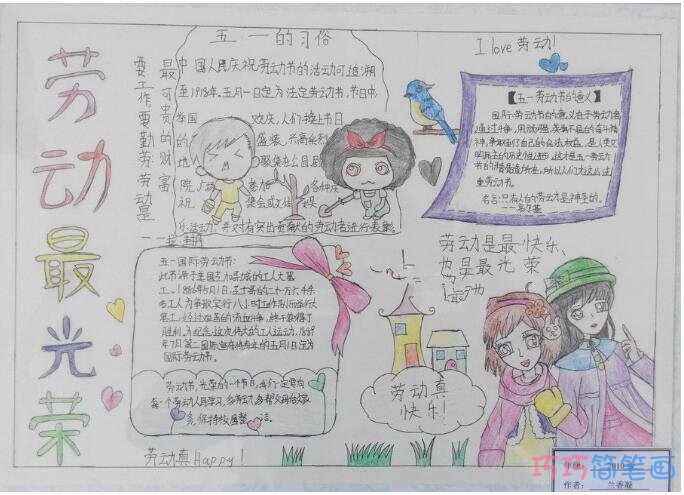 劳动最光荣
最可贵的财富
要工作要勤劳：劳动是
五一的习俗
中国人民庆祝劳动节的活动可追溯
至1918年。五月一日定为法定劳动节，节日中，
举国 欢庆，人们换上节日
的 盛装，兴高采烈
地 聚集在公园、剧
院、广场 参加 各种庆
祝 集会或文体 娱
乐活动，并对有突出贡献的劳动者进行表彰。
I love 劳动!
【五一劳动节的意义】
国际劳动节的意义在于劳动者
通过斗争，用顽强、英勇不屈的奋斗精
神，争取到了自己的合法权益，是人类文
明民主的历史性进步，这才是五一劳动
节的精髓所在。所以人们才这么注
重劳动节。
名言：只有人的劳动才是神圣的。
——高尔基
劳动是最快乐、
也是最光荣
的
活动
五一国际劳动节：
此节源于美国芝加哥城的工人大罢
工，1886年5月1日，芝加哥的二十一万六千余
名工人为争取实行八小时工作制而举行大
罢工，经过艰苦的流血斗争，终于获得了
胜利。为纪念这次伟大的工人运动，1889
年7月第二国际宣布将每年的五月1日定为
国际劳动节。
劳动节，光荣的一个节日，我们一定要向
每一个劳动人民学习，多劳动，多帮父母做家
务，保持校园整洁。
劳动真
快乐！
劳动真Happy!
年级：
作者： 兰香凝
巧巧简笔画